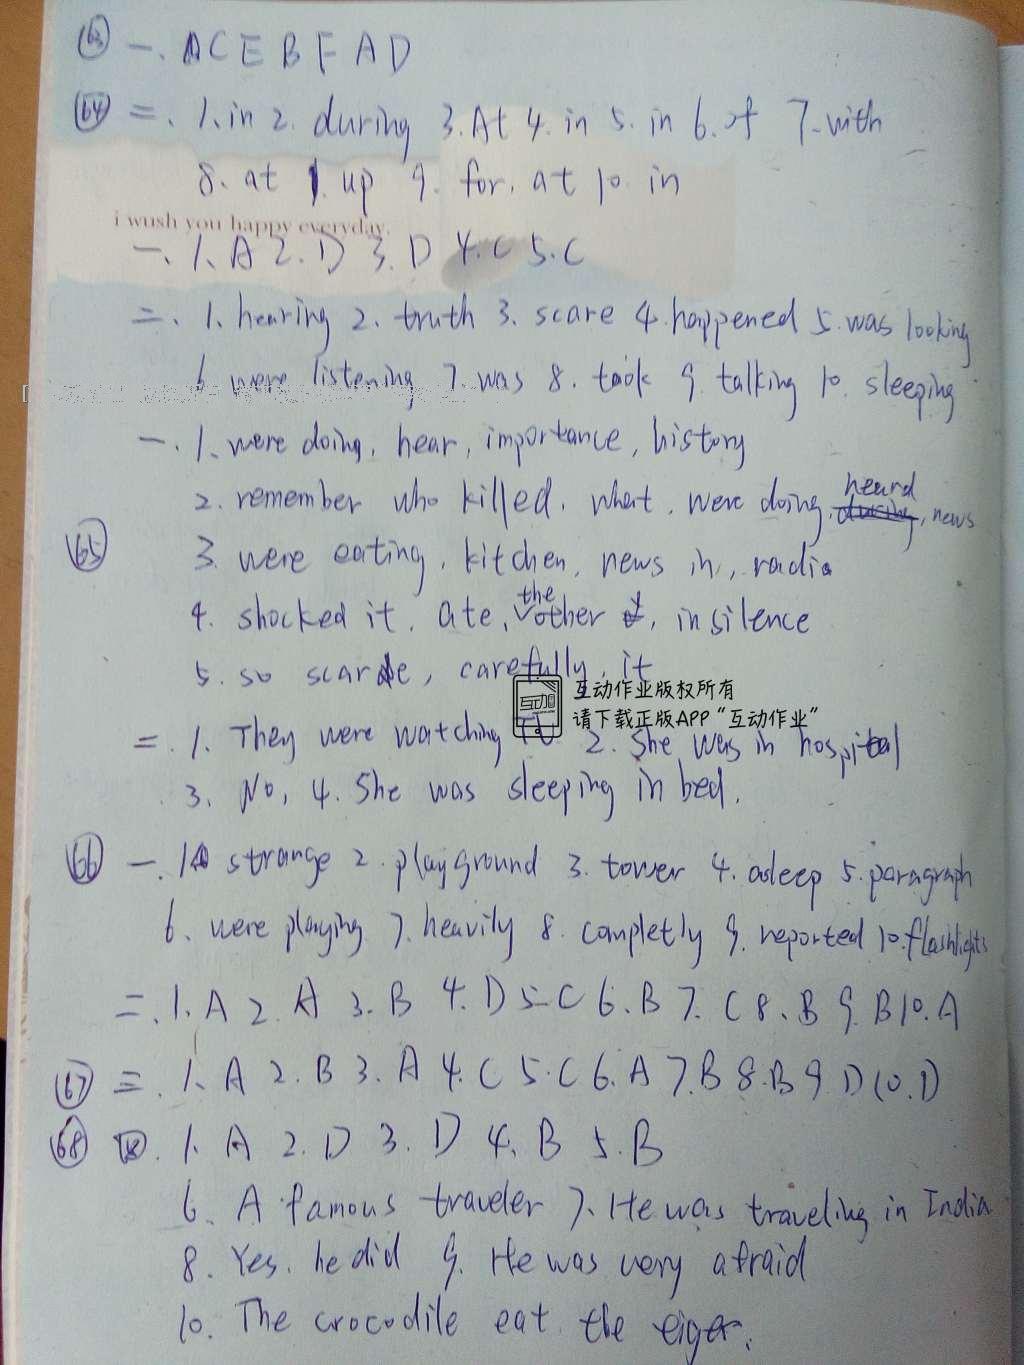 63 一. A C E B F A D
64 二. 1. in 2. during 3. At 4. in 5. in 6. of 7. with
8. at up 9. for, at 10 in
i wush you happy everyday.
一. 1. A 2. D 3. D 4. C 5. C
二. 1. hearing 2. truth 3. scare 4. happened 5. was looking
6. were listening 7. was 8. took 9. talking 10. sleeping
一. 1. were doing, hear, importance, history
2. remember who killed, what, were doing, heard, news
65 3. were eating, kitchen, news in, radio
4. shocked it, ate, the other, in silence
5. so scare, carefully, it
互动作业版权所有
请下载正版APP“互动作业”
二. 1. They were watching TV 2. She was in hospital
3. No, 4. She was sleeping in bed.
66 一. 1. strange 2. playground 3. tower 4. asleep 5. paragraph
6. were playing 7. heavily 8. completly 9. reported 10. flashlights
二. 1. A 2. A 3. B 4. D 5. C 6. B 7. C 8. B 9. B 10. A
67 三. 1. A 2. B 3. A 4. C 5. C 6. A 7. B 8. B 9 D 10. D
68 四. 1. A 2. D 3. D 4. B 5. B
6. A famous traveler 7. He was traveling in India
8. Yes, he did 9. He was very afraid
10. The crocodile eat the tiger.